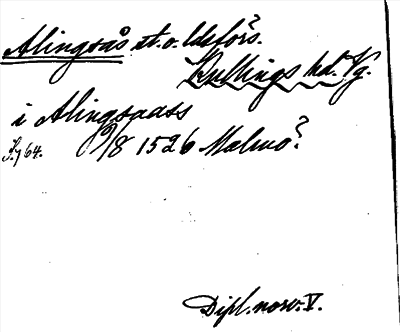 Alingsås st. o. ldsförs.
Kullings hd. Vg.
i Alingsaass
S. 764. 9/8 1526 Malmö?
Dipl. norv. V.